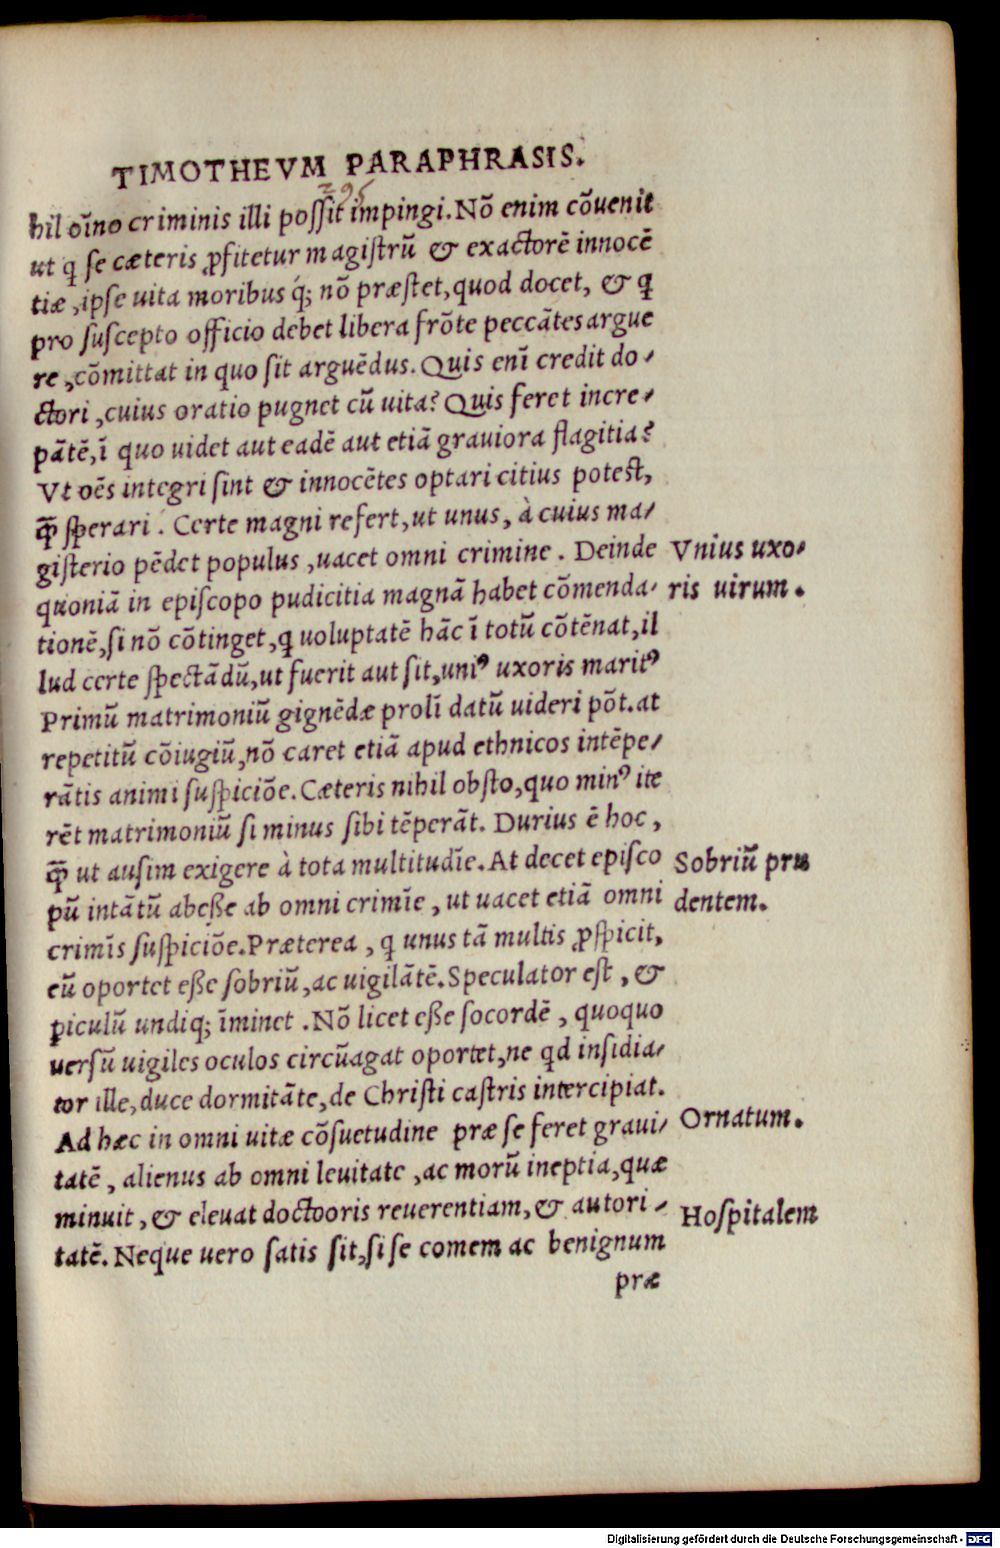 TIMOTHEVM PARAPHRASIS.
295
hil oīno criminis illi poſſit impingi. Nō enim cōuenit
ut q̃ ſe cæteris ꝓfitetur magiſtrū & exactorē innocē
tiæ, ipſe uita moribus q́; nō præſtet, quod docet, & q̃
pro ſuſcepto officio debet libera frōte peccātes argue
re, cōmittat in quo ſit arguēdus. Quis enī credit do-
ctori, cuius oratio pugnet cū uita? Quis feret incre-
pātē, ī quo uidet aut eadē aut etiā grauiora flagitia?
Vt oēs integri ſint & innocētes optari citius poteſt,
q̄ꝫ ſperari. Certe magni refert, ut unus, à cuius ma-
giſterio pēdet populus, uacet omni crimine. Deinde
quoniā in epiſcopo pudicitia magnā habet cōmenda-
tionē, ſi nō cōtinget, q̃ uoluptatē hāc ī totū cōtēnat, il
lud certe ſpectādū, ut fuerit aut ſit, uniꝰ uxoris maritꝰ
Primū matrimoniū gignēdæ prolī datū uideri pōt. at
repetitū cōiugiū, nō caret etiā apud ethnicos intēpe-
rātis animi ſuſpiciōe. Cæteris nihil obſto, quo minꝰ ite
rēt matrimoniū ſi minus ſibi tēperāt. Durius ē hoc,
q̄ꝫ ut auſim exigere à tota multitudīe. At decet epiſco
pū intātū abeſſe ab omni crimīe, ut uacet etiā omni
crimīs ſuſpiciōe. Præterea, q̃ unus tā multis ꝓſpicit,
eū oportet eſſe ſobriū, ac uigilātē. Speculator eſt, &
ꝑiculū undiq; īminet. Nō licet eſſe ſocordē, quoquo
uerſū uigiles oculos circūagat oportet, ne qd inſidia-
tor ille, duce dormitāte, de Chriſti caſtris intercipiat.
Ad hæc in omni uitæ cōſuetudine præ ſe feret graui-
tatē, alienus ab omni leuitate, ac morū ineptia, quæ
minuit, & eleuat doctooris reuerentiam, & autori-
tatē. Neque uero ſatis ſit, ſi ſe comem ac benignum
præ
Vnius uxo-
ris uirum.
Sobriū pru
dentem.
Ornatum.
Hoſpitalem
Digitalisierung gefördert durch die Deutsche Forschungsgemeinschaft - DFG